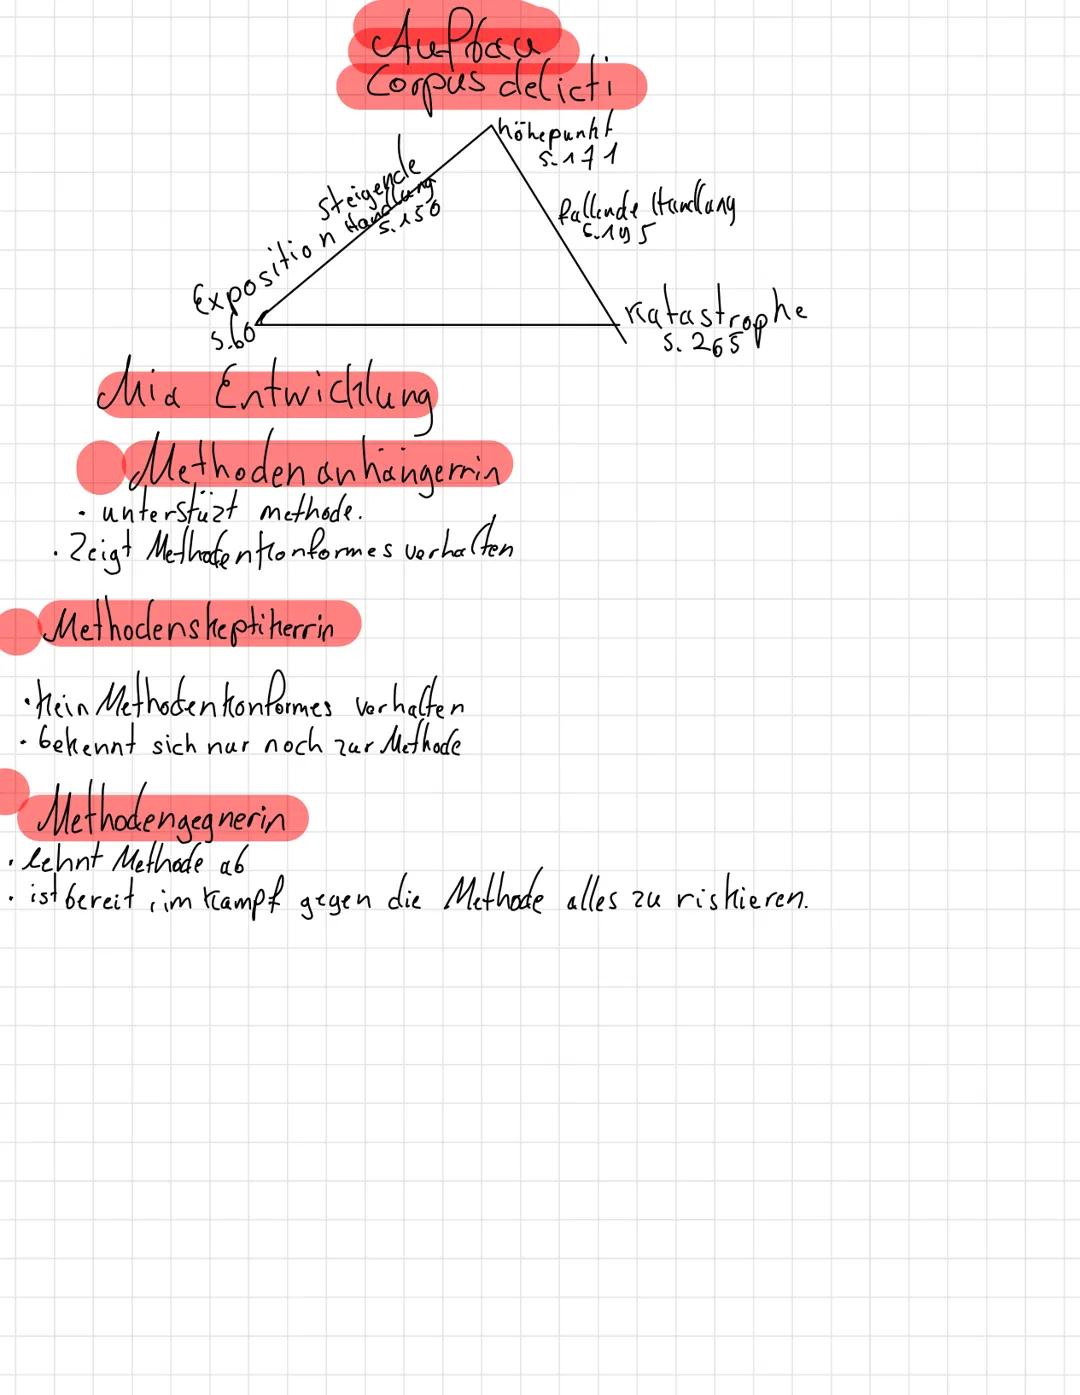 Aufbau
Corpus delicti
höhepunkt
S. 171
Steigende
Handlung
S. 150
fallende Handlung
S. 195
Exposition
S. 60
Katastrophe
S. 265
Mia Entwicklung
Methodenanhängerrin
• unterstüzt methode.
• Zeigt Methodenkonformes verhalten
Methodenskeptikerrin
• kein Methodenkonformes verhalten
• bekennt sich nur noch zur Methode
Methodengegnerin
• lehnt Methode ab
• ist bereit, im Kampf gegen die Methode alles zu riskieren.